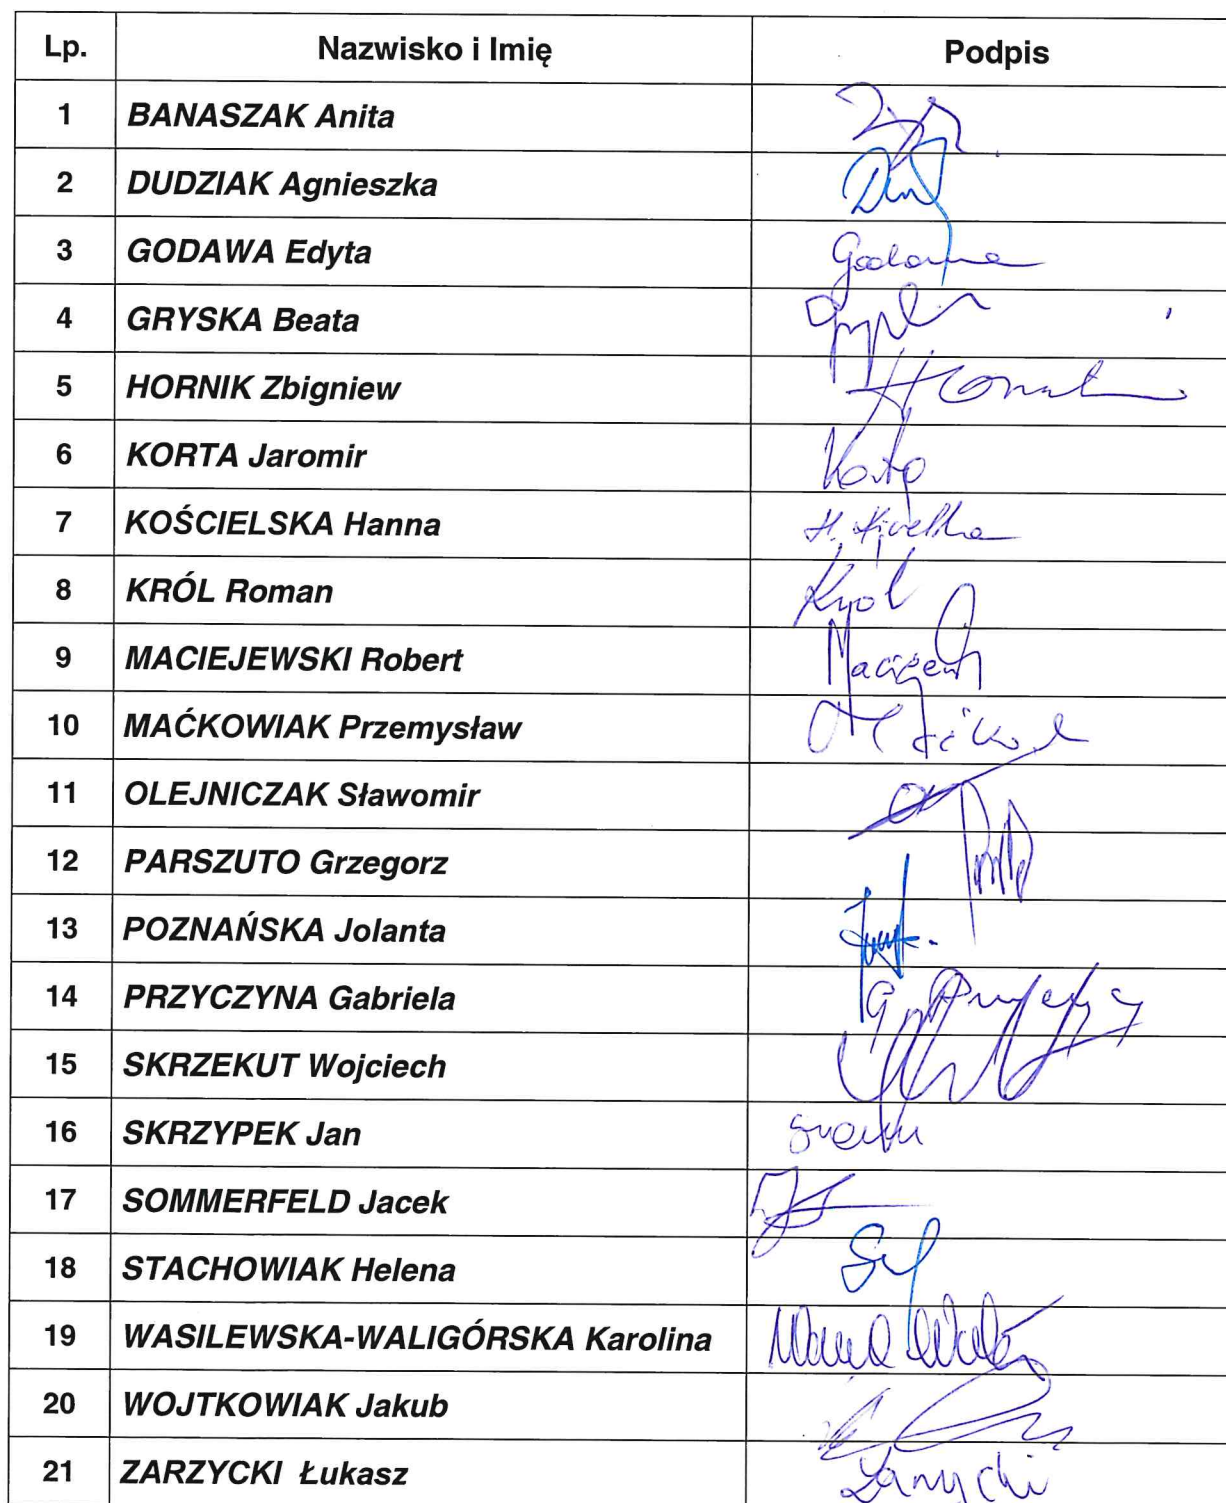 Lp. Nazwisko i Imię Podpis
1 BANASZAK Anita
2 DUDZIAK Agnieszka
3 GODAWA Edyta Godawa
4 GRYSKA Beata
5 HORNIK Zbigniew
6 KORTA Jaromir Korta
7 KOŚCIELSKA Hanna H.
8 KRÓL Roman Król
9 MACIEJEWSKI Robert
10 MAĆKOWIAK Przemysław
11 OLEJNICZAK Sławomir
12 PARSZUTO Grzegorz
13 POZNAŃSKA Jolanta
14 PRZYCZYNA Gabriela
15 SKRZEKUT Wojciech
16 SKRZYPEK Jan
17 SOMMERFELD Jacek
18 STACHOWIAK Helena
19 WASILEWSKA-WALIGÓRSKA Karolina
20 WOJTKOWIAK Jakub
21 ZARZYCKI Łukasz Zarzycki